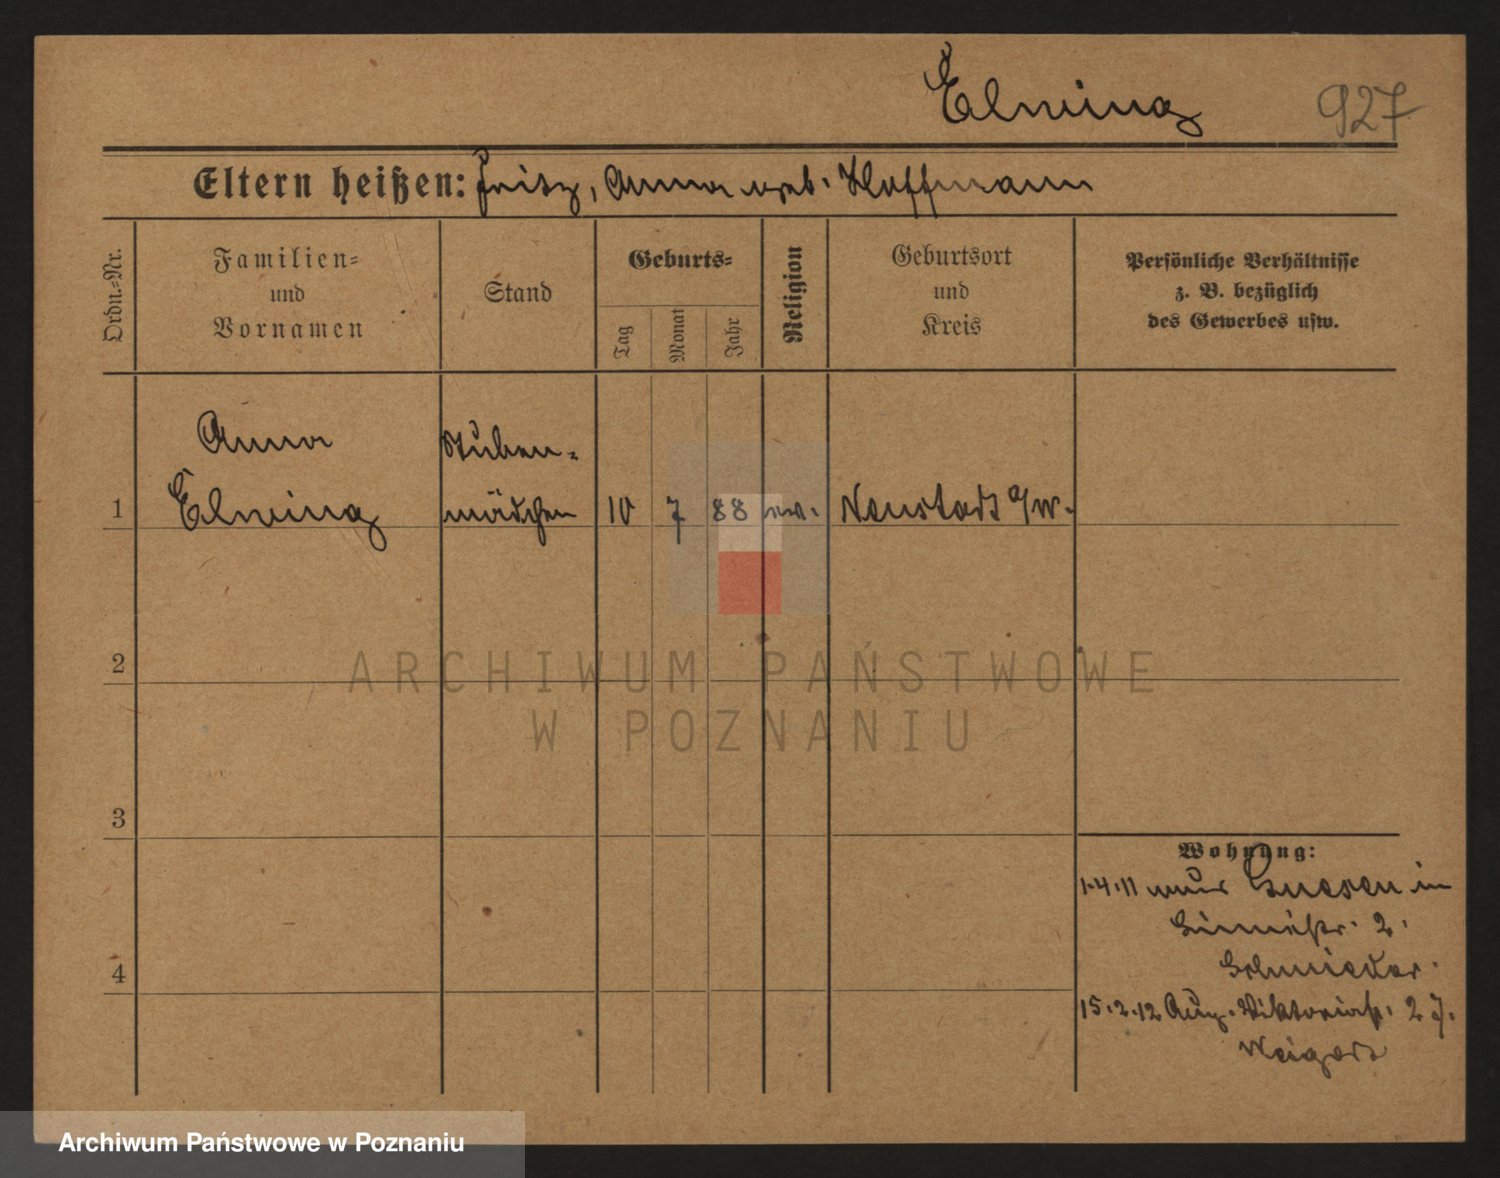 Elwing 927
Eltern heißen: Fritz, Anna geb. Hoffmann
Ordn.-Nr.
Familien-
und
Vornamen
Stand
Geburts-
Tag
Monat
Jahr
Religion
Geburtsort
und
Kreis
Persönliche Verhältnisse
z. B. bezüglich
des Gewerbes usw.
Anna Stuben-
1 Elwing mädchen 10 7 88 ev. Neustadt a/W.
2
ARCHIWUM PAŃSTWOWE
W POZNANIU
3
Wohnung:
1.4.11 aus Gnesen in
2.
4
15.2.12 Aug. Viktoriastr. 27.
Weigert
Archiwum Państwowe w Poznaniu